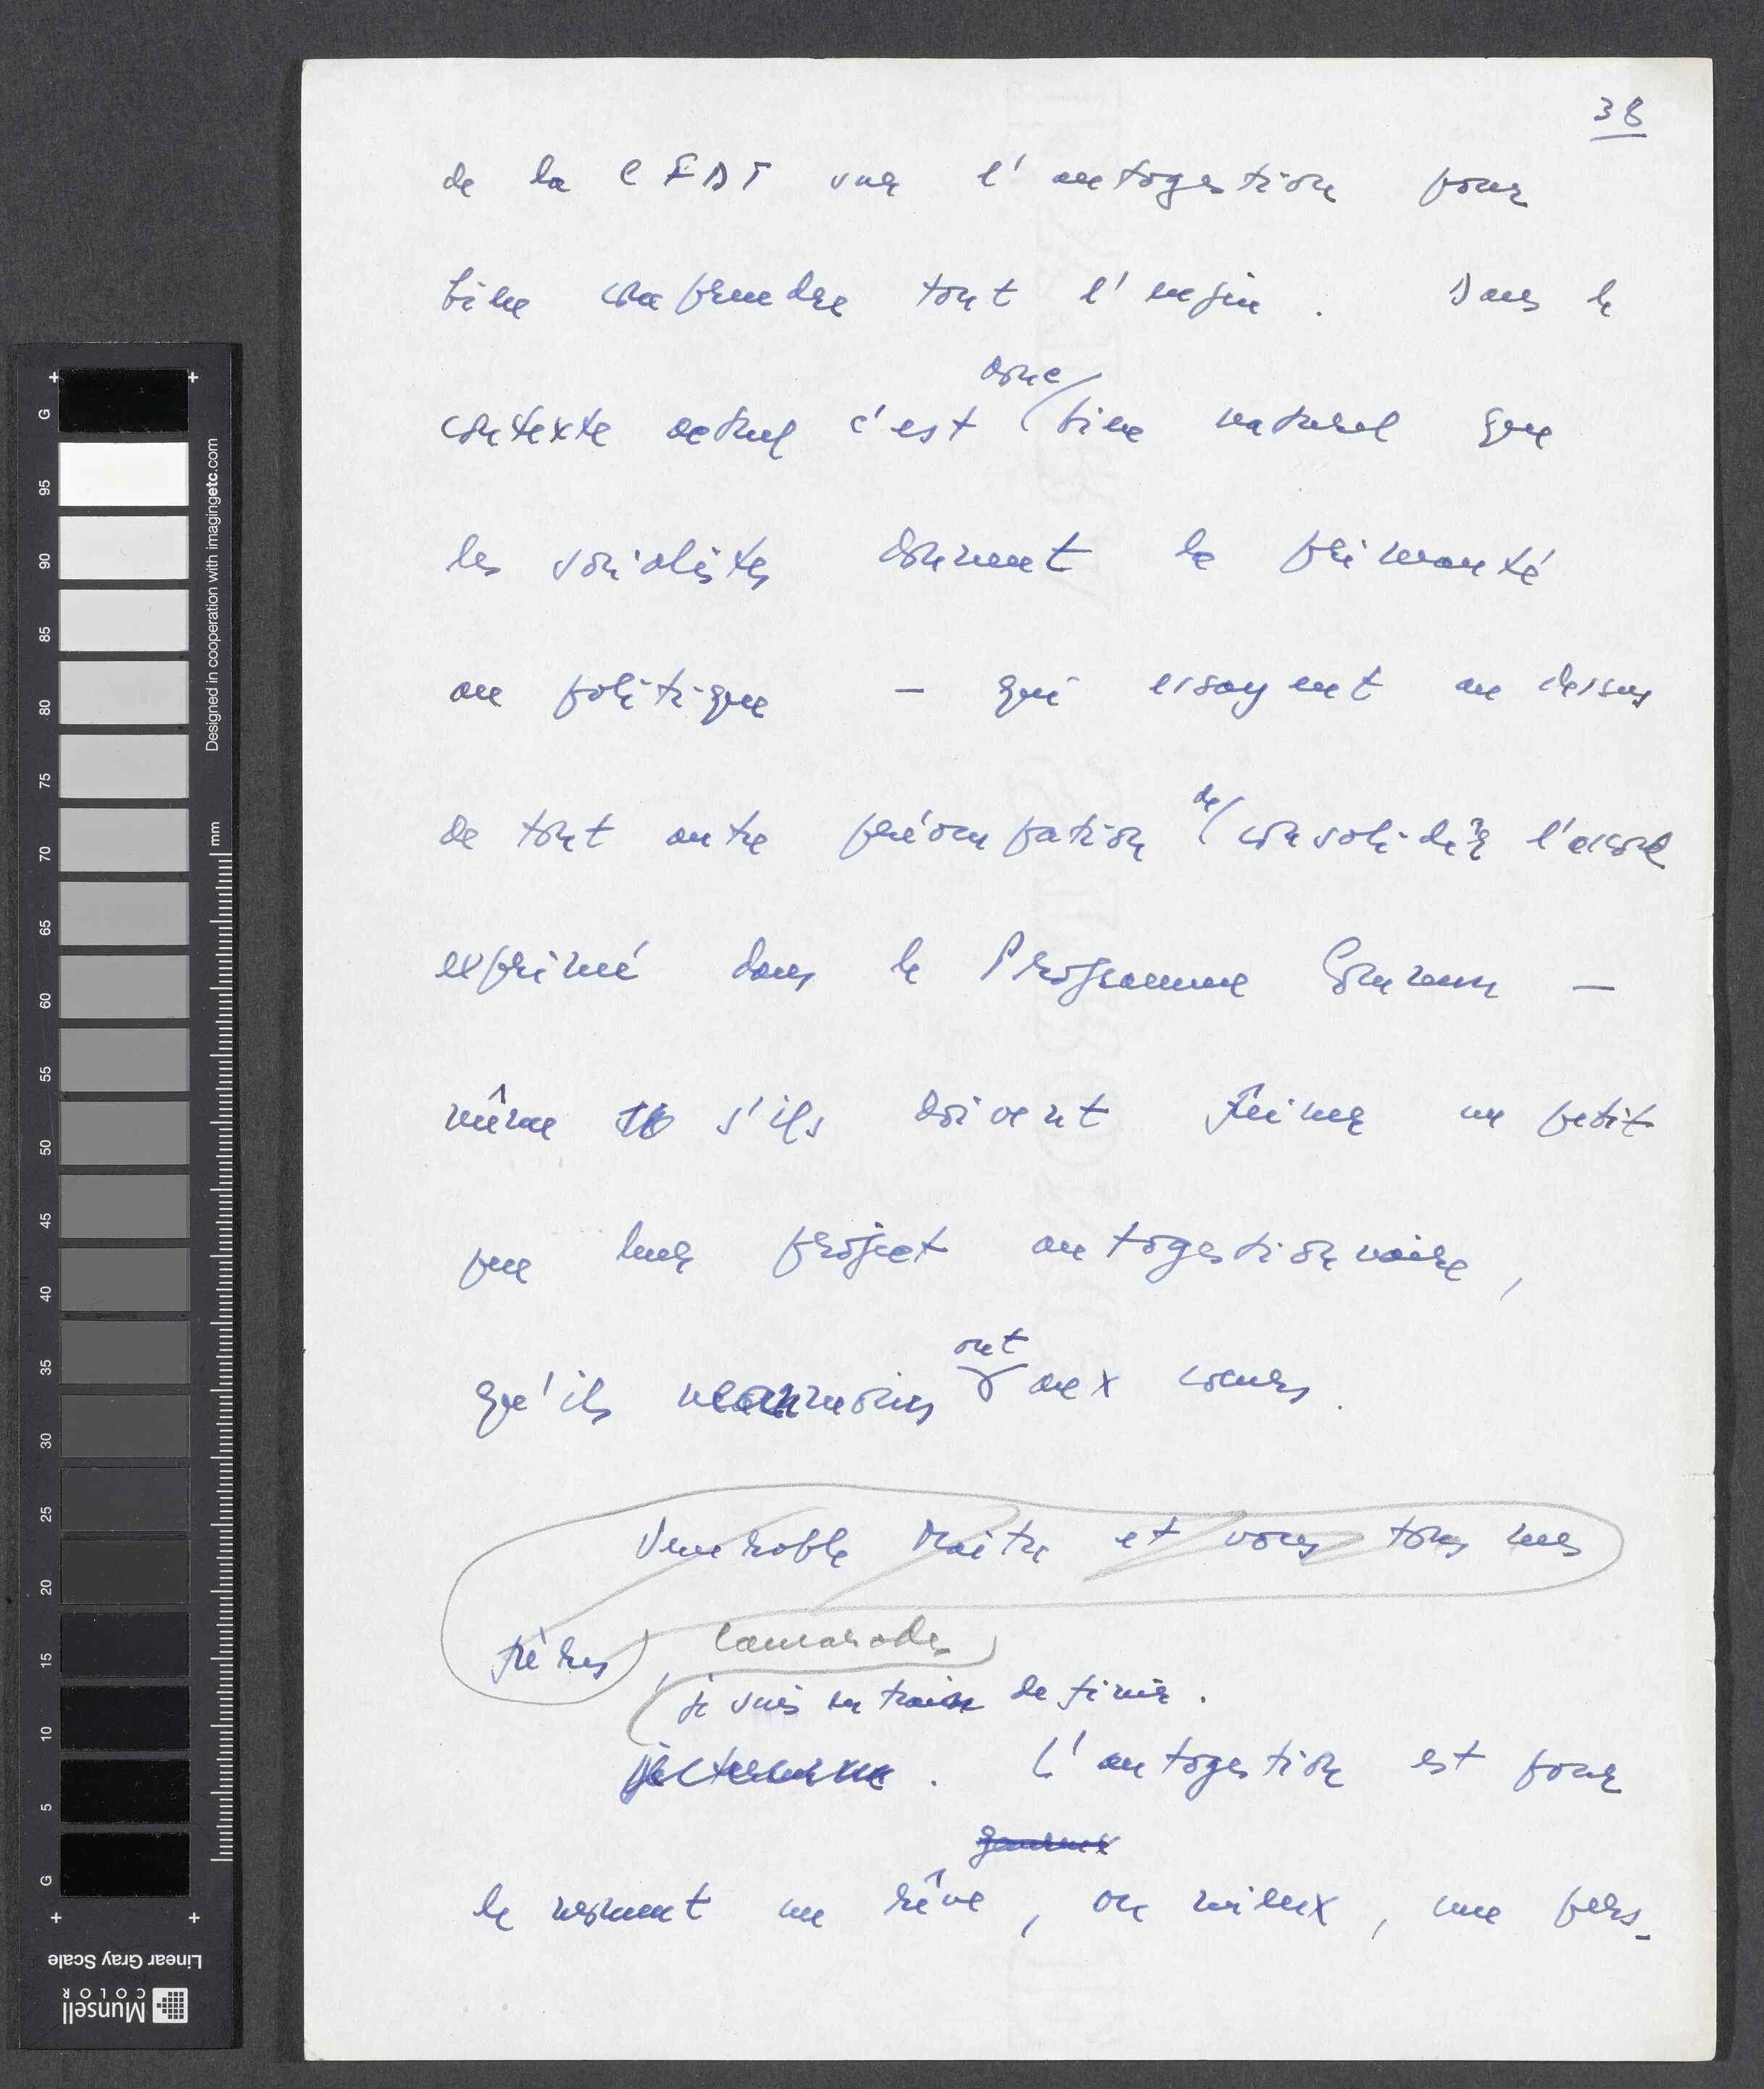 38
de la CFDT sur l'autogestion pour
bien comprendre tout l'enjeu. Dans le
donc
contexte actuel c'est bien naturel que
les socialistes donnent la primauté
au politique – qui essayent au dessus
de
de tout autre préoccupation consolider l'accord
exprimé dans le Programme Commun –
même s'ils doivent freiner un petit
peu leur projet autogestionnaire,
ont
qu'ils néanmoins aux coeurs.
Venerable Maitre et vous tous mes
frères, camarades
je suis en train de finir.
je termine. L'autogestion est pour
le moment un rêve, ou mieux, une pers-
G
95
90
85
80
75
70
65
60
55
50
45
40
35
30
25
20
15
10
5
G
mm
Designed in cooperation with imagingetc.com
Linear Gray Scale
Munsell
COLOR